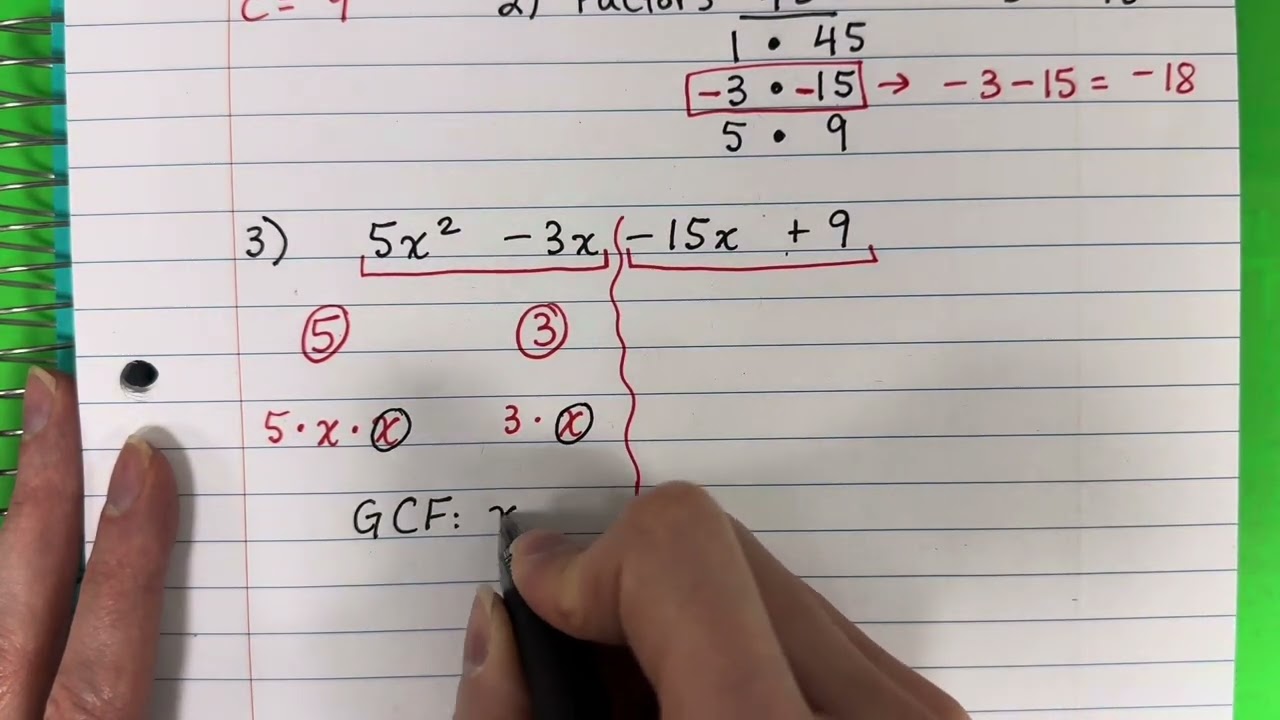 C =
2) Factors
1 • 45
-3 • -15 → -3-15 = -18
5 • 9
3) 5x² -3x -15x + 9
5 3
5•x•x 3•x
GCF: x